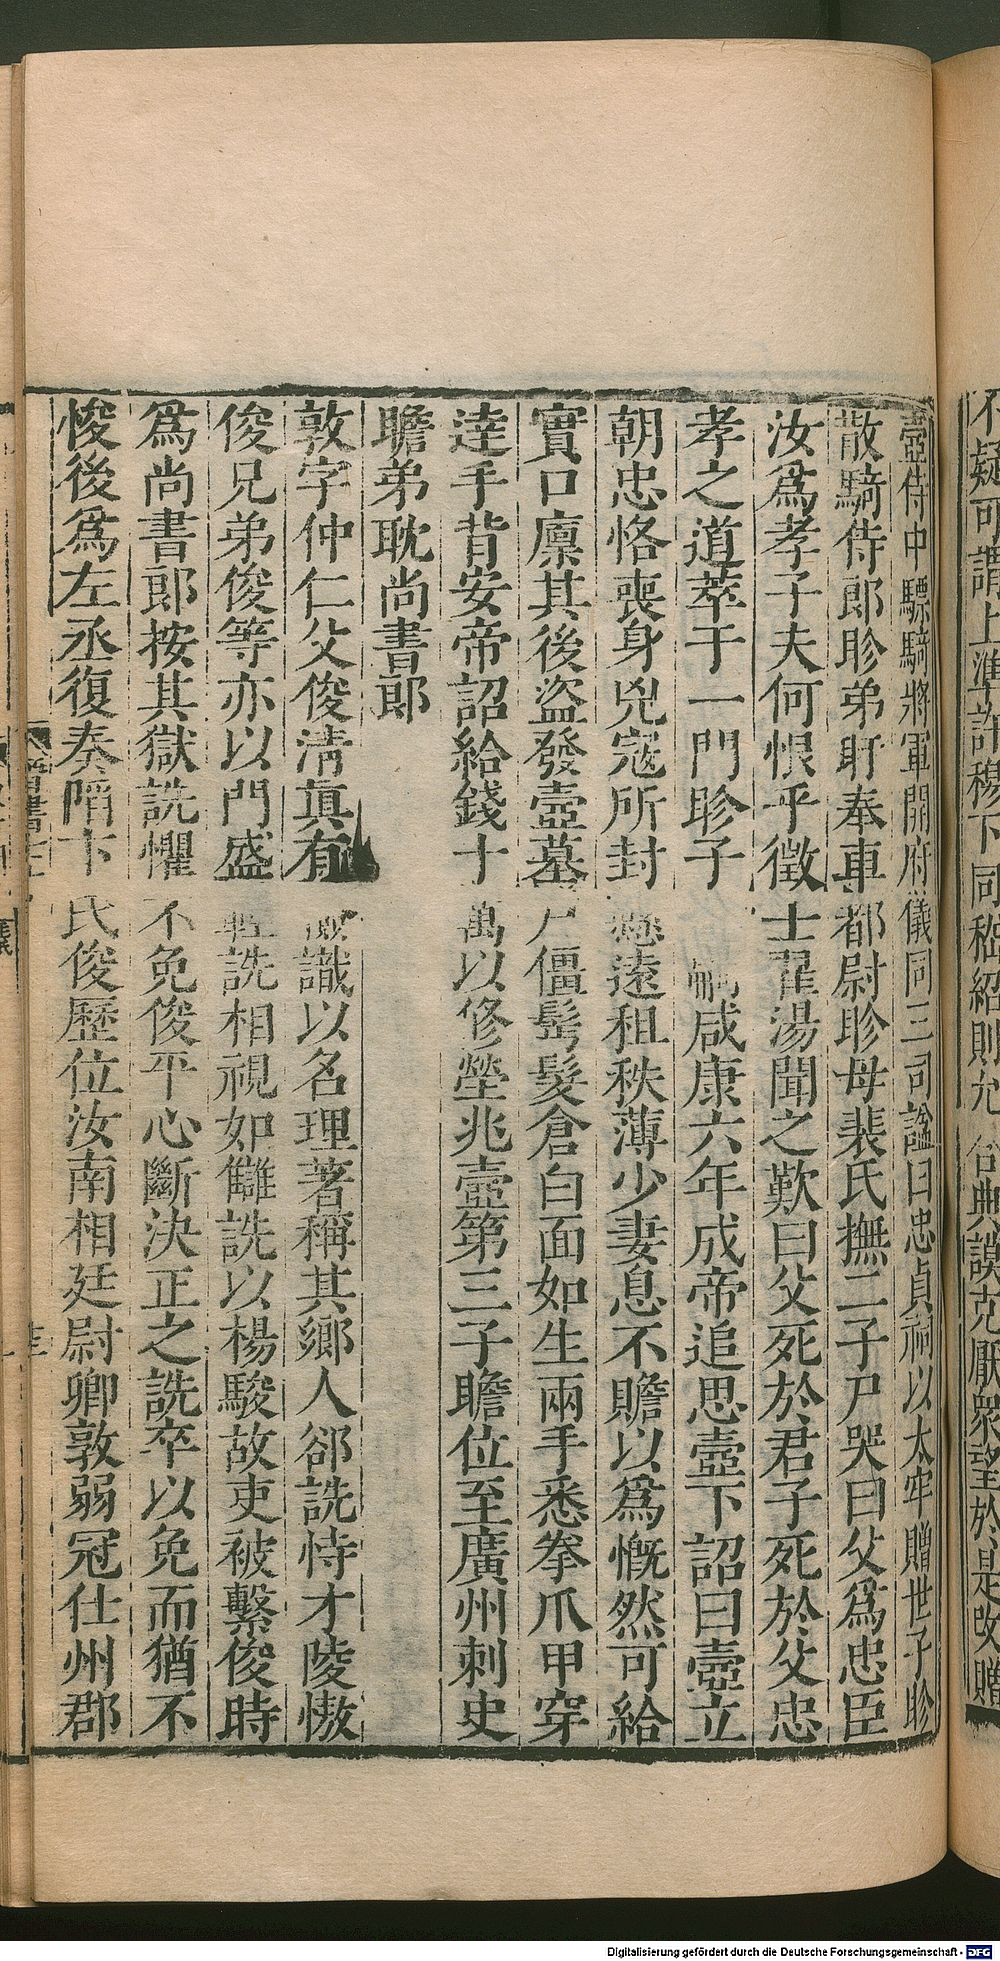 不疑可謂上準許穆下同嵇紹則允合典謨克厭衆望於是改贈
壼侍中驃騎將軍開府儀同三司諡曰忠貞祠以太牢贈世子眕
散騎侍郎眕弟盱奉車都尉眕母裴氏撫二子尸哭曰父爲忠臣
汝爲孝子夫何恨乎徵士翟湯聞之歎曰父死於君子死於父忠
孝之道萃于一門眕子咸康六年成帝追思壼下詔曰壼立
朝忠恪喪身兇寇所封懸遠租秩薄少妻息不贍以爲慨然可給
實口廪其後盜發壼墓尸僵鬂髮倉白面如生兩手悉拳爪甲穿
達手背安帝詔給錢十萬以修塋兆壼第三子瞻位至廣州刺史
瞻弟耽尚書郎
敦字仲仁父俊清真有識以名理著稱其鄉人郤詵恃才陵慠
俊兄弟俊等亦以門盛輕詵相視如讎詵以楊駿故吏被繫俊時
爲尚書郎按其獄詵懼不免俊平心斷決正之詵卒以免而猶不
悛後爲左丞復奏陷卞氏俊歷位汝南相廷尉卿敦弱冠仕州郡
Digitalisierung gefördert durch die Deutsche Forschungsgemeinschaft - DFG